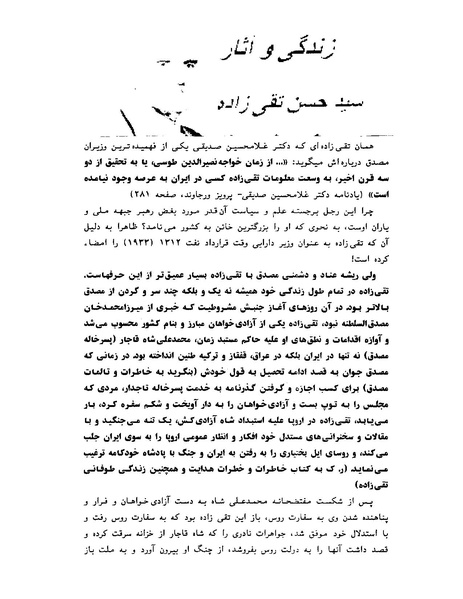 زندگی و آثار
سید حسن تقی زاده
همان تقی زاده ای که دکتر غلامحسین صدیقی یکی از فهمیده ترین وزیران
مصدق درباره اش میگوید: «... از زمان خواجه نصیرالدین طوسی، یا به تحقیق از دو
سه قرن اخیر، به وسعت معلومات تقی زاده کسی در ایران به عرصه وجود نیامده
است» (یادنامه دکتر غلامحسین صدیقی- پرویز ورجاوند، صفحه ۲۸۱)
چرا این رجل برجسته علم و سیاست آن قدر مورد بغض رهبر جبهه ملی و
یاران اوست، به نحوی که او را بزرگترین خائن به کشور می نامد؟ ظاهرا به دلیل
آن که تقی زاده به عنوان وزیر دارایی وقت قرارداد نفت ۱۳۱۲ (۱۹۳۳) را امضاء
کرده است!
ولی ریشه عناد و دشمنی مصدق با تقی زاده بسیار عمیق تر از این حرفهاست.
تقی زاده در تمام طول زندگی خود همیشه نه یک و بلکه چند سر و گردن از مصدق
بالاتر بود. در آن روزهای آغاز جنبش مشروطیت که خبری از میرزامحمدخان
مصدق السلطنه نبود، تقی زاده یکی از آزادی خواهان مبارز و بنام کشور محسوب می شد
و آوازه اقدامات و نطق های او علیه حاکم مستبد زمان، محمدعلی شاه قاجار (پسرخاله
مصدق) نه تنها در ایران بلکه در عراق، قفقاز و ترکیه طنین انداخته بود. در زمانی که
مصدق جوان به قصد ادامه تحصیل به قول خودش (بنگرید به خاطرات و تالمات
مصدق) برای کسب اجازه و گرفتن گذرنامه به خدمت پسرخاله تاجدار، مردی که
مجلس را به توپ بست و آزادی خواهان را به دار آویخت و شکم سفره کرد، بار
می یابد، تقی زاده در اروپا علیه استبداد شاه آزادی کش، یک تنه می جنگید و با
مقالات و سخنرانی های مستدل خود افکار و انظار عمومی اروپا را به سوی ایران جلب
می کند، و روسای ایل بختیاری را به رفتن به ایران و جنگ با پادشاه خودکامه ترغیب
می نماید. (ر. ک به کتاب خاطرات و خطرات هدایت و همچنین زندگی طوفانی
تقی زاده)
پس از شکست مفتضحانه محمدعلی شاه به دست آزادی خواهان و فرار و
پناهنده شدن وی به سفارت روس، باز این تقی زاده بود که به سفارت روس رفت و
با استدلال خود موفق شد، جواهرات نادری را که شاه قاجار از خزانه سرقت کرده و
قصد داشت آنها را به دولت روس بفروشد، از چنگ او بیرون آورد و به ملت باز